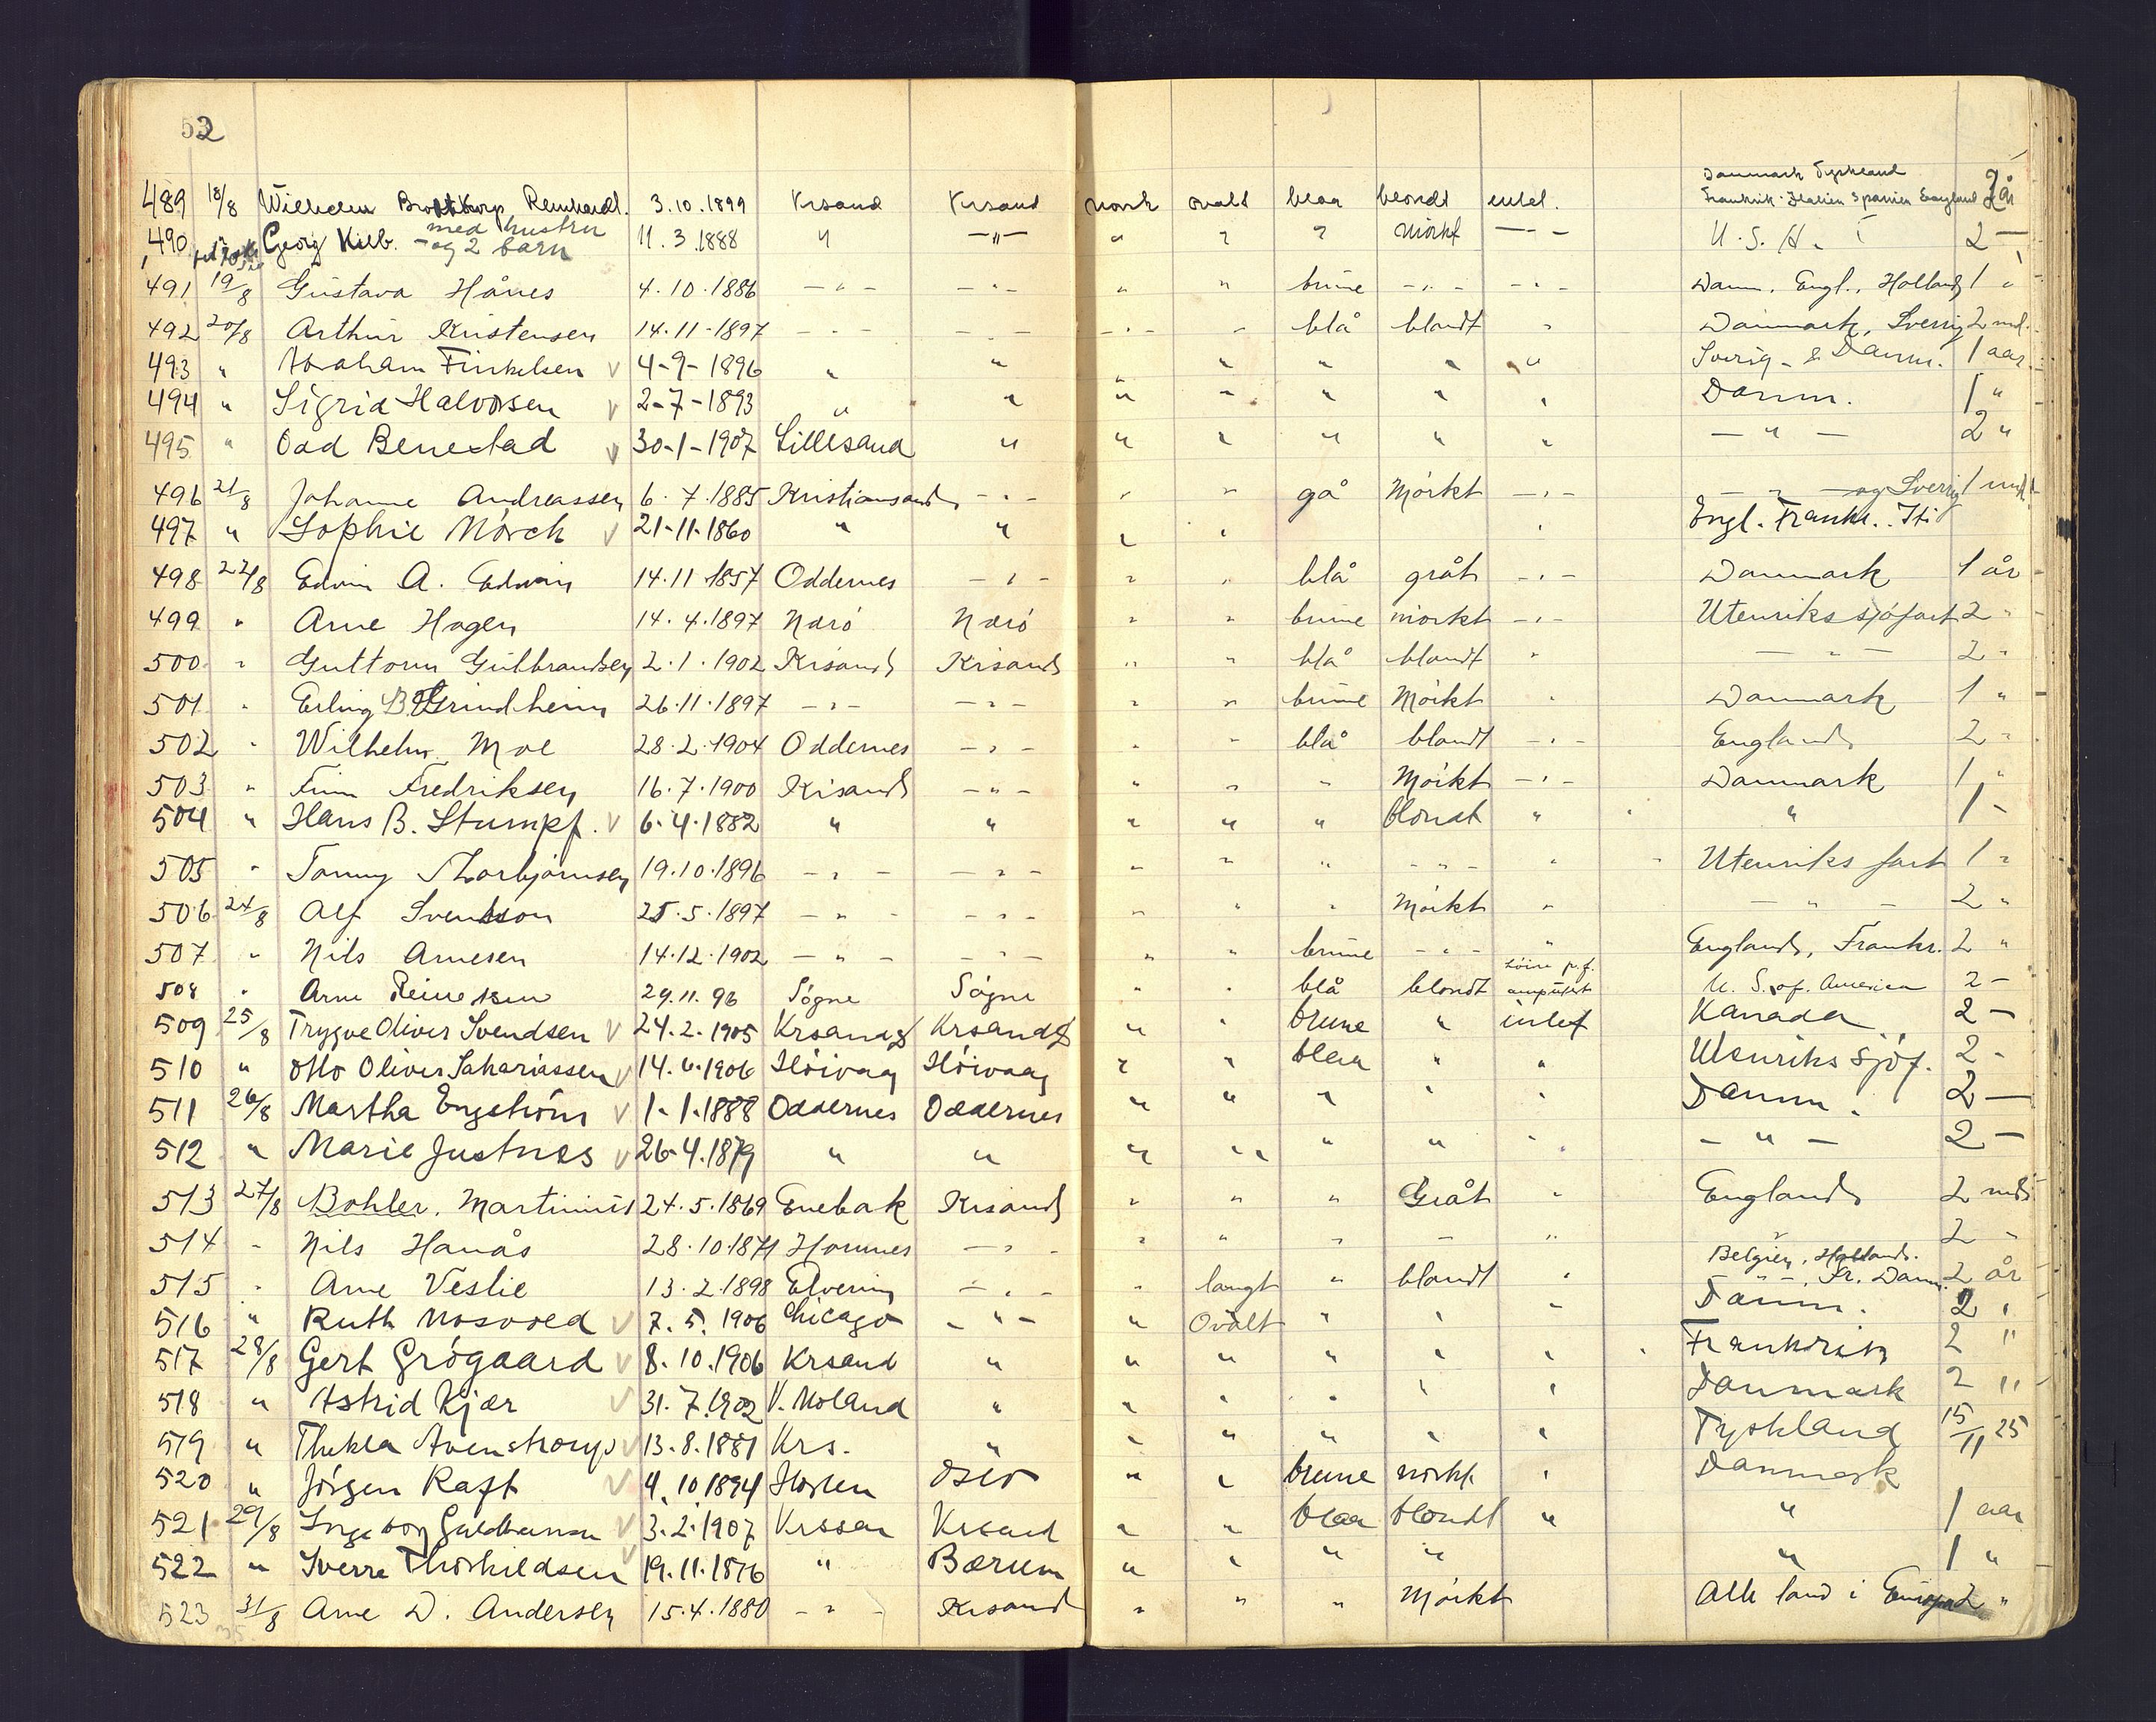 52
Danmark Tyskland
489 18/8 Wilhelm Reinhardt. 3.10.1899 Krsand Krsand norsk ovalt blaa blondt intet. Frankrik - Italien Spanien England 2 år
med hustru
490 " Georg Kilb. - og 2 barn 11.3.1888 " -"- " " " mörkt -"- U.S.A. 2 -
491 19/8 Gustava Hånes 4.10.1886 -"- -"- " " brune -"- -"- Danm. Engl., Holland 1 "
492 20/8 Arthur Kristensen 14.11-1897 -"- -"- -"- " blå blondt " Danmark, Sverig 2 md.
493 " Abraham Finkelsen V 4-9-1896 " " " " " " " Sverig - & Danm. 1 aar
494 " Sigrid Halvorsen V 2-7-1893 " " " " " " " Danm. 1 "
495 " Odd Benestad V 30-1-1907 Lillesand " " " " " " - " - 2 "
496 21/8 Johanne Andreassen 6.7.1885 Kristiansand -"- " " gå Mörkt -"- - " - og Sverig 1 mnd
497 " Sophie Mörch V 21-11-1860 " " " " " Engl. Frankr. Iti
498 22/8 Edwin A. Edwin 14.11 1857 Oddernes -"- " " blå gråt -"- Danmark 1 år
499 " Arne Hagen 14.4.1897 Närö Närö " " brune mörkt -"- Utenriks sjöfart 2 "
500 " Guttorm Gulbrandsen 2.1.1902 Krisand Krisand " " blå blondt " - " - 2 "
501 " Erling B. Grindheim 26.11.1897 -"- -"- " " brune Mörkt " Danmark 1 "
502 " Wilhelm Moe 28.2.1904 Oddernes -"- " " blå blondt -"- England 2 "
503 " Finn Fredriksen 16.7.1900 Krisand -"- " " " Mörkt -"- Danmark 1 "
504 " Hans B. Stumpf. V 6.4.1882 " " " " " blondt " " 1 -
505 " Tommy Thorbjörnsen 19.10.1896 -"- -"- " " " -"- " Utenriks fart 1 "
506 24/8 Alf Svendson 25.5.1897 -"- -"- " " " Mörkt " - " - 2 "
507 " Nils Arnesen 14.12.1902 -"- -"- " " brune -"- " England, Frankr. 2 "
höire p.f.
508 " Arne 29.11.96 Sögne Sögne " " blå blondt amputert U. S. of. America 2 -
509 25/8 Trygve Oliver Svendsen V 24.2.1905 Krsand Krsand " " brune " intet Kanada 2 -
510 " Otto Oliver Sakariassen V 14.6.1906 Höivaag Höivaag " " blaa " " Utenriks Sjöf. 2 -
511 26/8 Martha Engström V 1-1-1888 Oddernes Oddernes " " " " " Danm. 2 -
512 " Marie Justnes V 26-4.1879 " " " " " " " - " - 2 -
513 27/8 Bohler, Martinius 24.5.1869 Enebak Krisand " " " Gråt " England 2 mdr
514 " Nils Hanås 28.10.1871 Hornnes -"- " " " " " " 2 "
Belgien, Holland.
515 " Arne Veslie 13.2.1898 Elverum -"- " langt " blondt " - " - Fr. Danm. 2 år
516 " Ruth Mosvold V 7.5.1906 Chicago -"- " Ovalt " " " Danm. 2 "
517 28/8 Gert Grögaard V 8.10.1906 Krsand " " " " " " Frankrik 2 "
518 " Astrid Kjær V 31.7.1902 V. Moland " " " " " " Danmark 2 "
519 " Thekla Avenstroup V 13.8.1881 Krs. " " " " " " Tyskland 15/11 25
520 " Jörgen Raft V 4.10 1894 Horten Oslo " " brune mörkt " Danmark
521 29/8 Ingeborg Guldbransen V 3.2.1907 Krssan Krsand " " blaa blondt " " 1 aar
522 " Sverre Thorkildsen V 19.11.1876 " Bærum " " " " " 1 "
523 31/8 Arne D. Andersen 15.4.1880 -"- Krsand " " " Mörkt Alle land i Europa 2 "